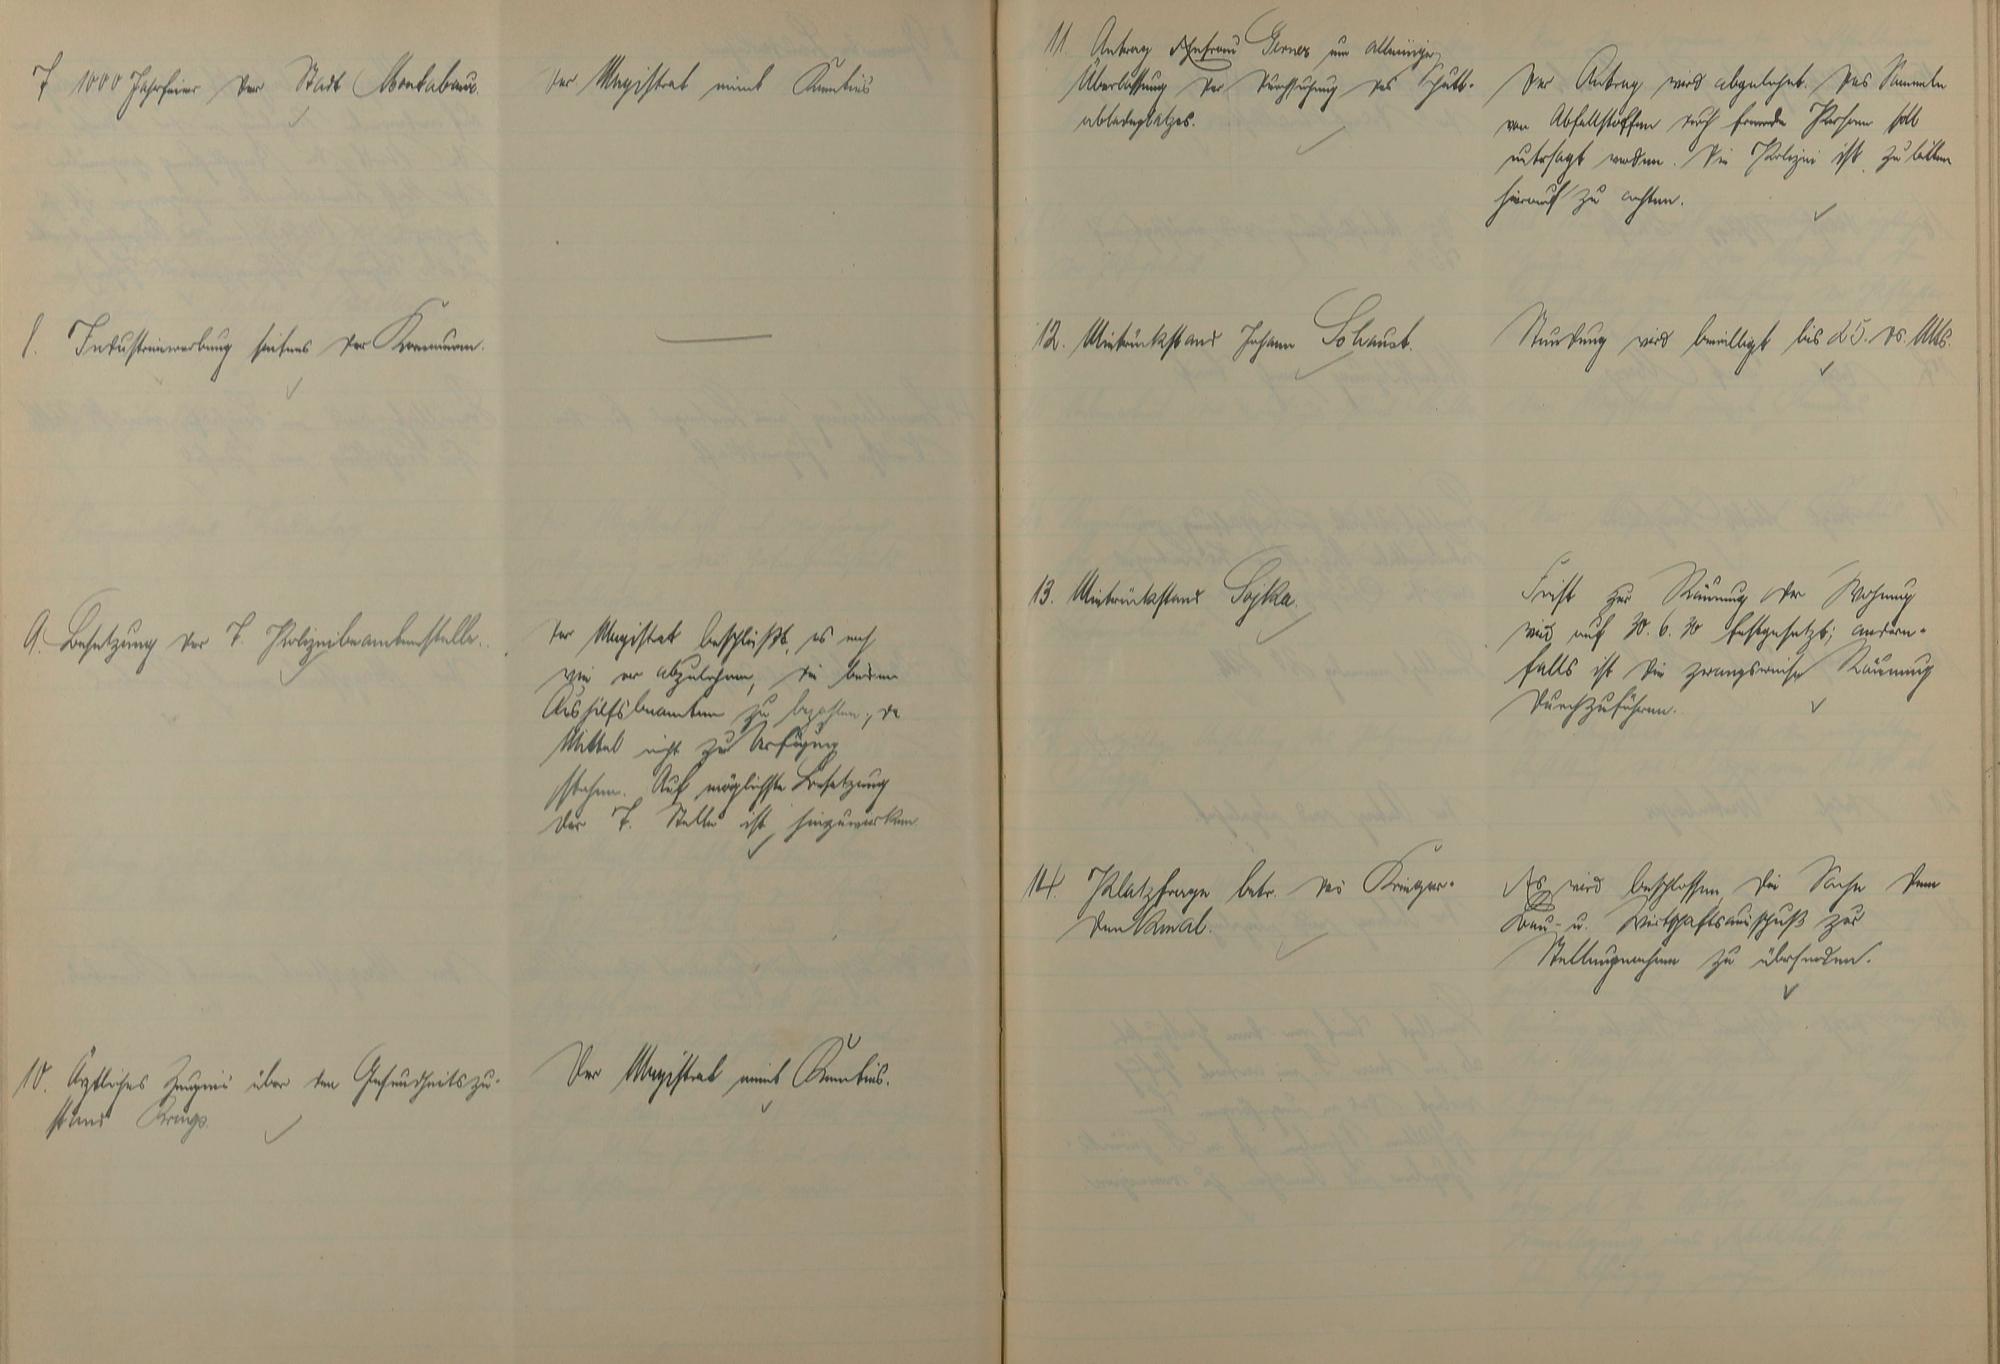 7. 1000 Jahrfeier der Stadt Montabaur.
Der Magistrat nimmt Kenntnis
8. Industriewerbung seitens der Kommunen.
9. Besetzung der 7. Polizeibeamtenstelle.
Der Magistrat beschließt, es nach
wie vor abzulehnen, die beiden
Aushilfsbeamten zu bezahlen, da
Mittel nicht zur Verfügung
stehen. Auf möglichste Besetzung
der 7. Stelle ist hinzuwirken.
10. Ärztliches Zeugnis über den Gesundheitszu-
stand
Der Magistrat nimmt Kenntnis.
11. Antrag Ehefrau um alleinige
Überlassung der Durchsuchung des Schutt-
abladeplatzes.
Der Antrag wird abgelehnt. Das Sammeln
von Abfallstoffen durch fremde Personen soll
untersagt werden. Die Polizei ist zu bitten
hierauf zu achten.
12. Mietrückstand Johann Schaust.
Stundung wird bewilligt bis 25. ds. Mts.
13. Mietrückstand Sojka.
Frist zur Räumung der Wohnung
wird auf 30. 6. 30 festgesetzt; andern-
falls ist die zwangsweise Räumung
durchzuführen.
14. Platzfrage betr. des Krieger-
denkmal.
Es wird beschlossen, die Sache dem
Bau- u. Wirtschaftsausschuß zur
Stellungnahme zu übersenden.